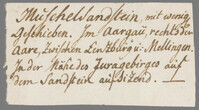 Muschelsandstein, mit wenig
Geschieben. Im Aargäu, rechts der
Aare, zwischen Lentzburg u. Mellingen.
In der Nähe des Juragebirges auf
dem Sandstein aufsitzend. —